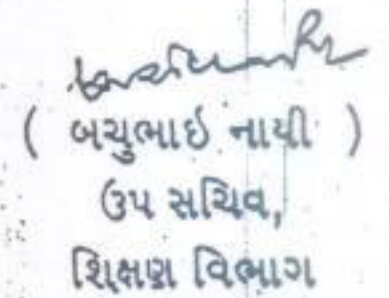 ( બચુભાઇ નાયી )
ઉપ સચિવ,
શિક્ષણ વિભાગ